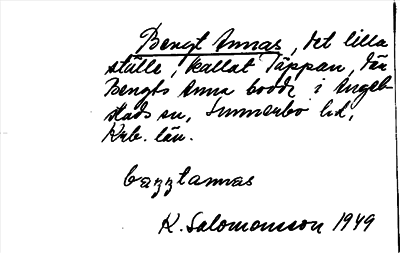 Bengt Annas, det lilla
ställe, kallat Täppan, där
Bengts Anna bodde i Ångel-
stads sn, Sunnerbo hd,
Krb. län.
bazztannas
K. Salomonsson 1949